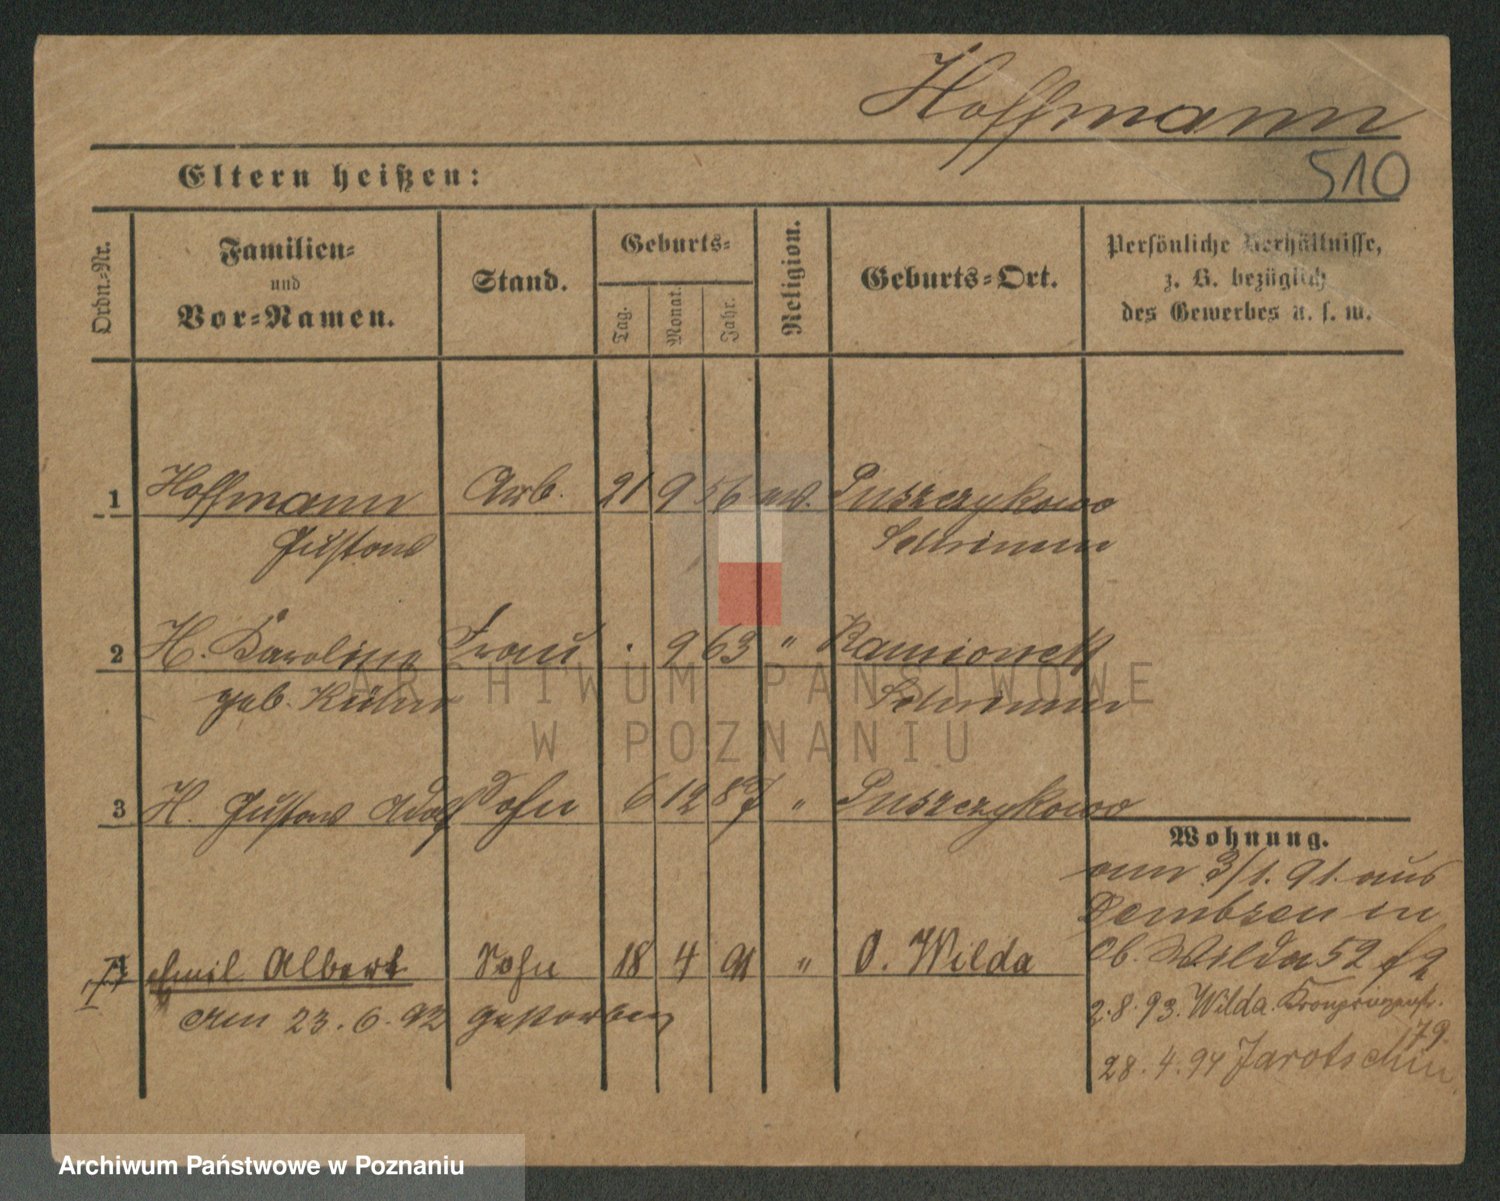 Hoffmann
510
Eltern heißen:
Ordn.-Nr.
Familien-
und
Vor-Namen.
Stand.
Geburts-
Tag.
Monat.
Jahr.
Religion.
Geburts-Ort.
Persönliche Verhältnisse,
z. B. bezüglich
des Gewerbes u. s. w.
1 Hoffmann Arb. 21 9 56 ev. Puszczykowo
Gustav Schrimm
2 H. Karoline Frau . 9 63 "
geb. Schrimm
3 H. Gustav Adolf Sohn 6 12 87 " Puszczykowo
Wohnung.
am 3/1. 91. aus
Dembsen in
Ob. Wilda 52
4 Emil Albert Sohn 18 4 91 " O. Wilda
am 23.6.92 gestorben
2.8.93. Wilda. Kronprinzenstr.
79.
28.4.94 Jarotschin
ARCHIWUM PAŃSTWOWE
W POZNANIU
Archiwum Państwowe w Poznaniu